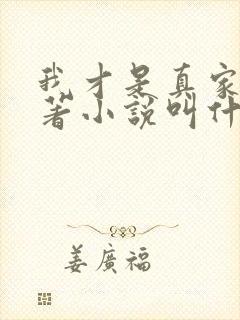 我才是真家
著小說叫什
姜廣福